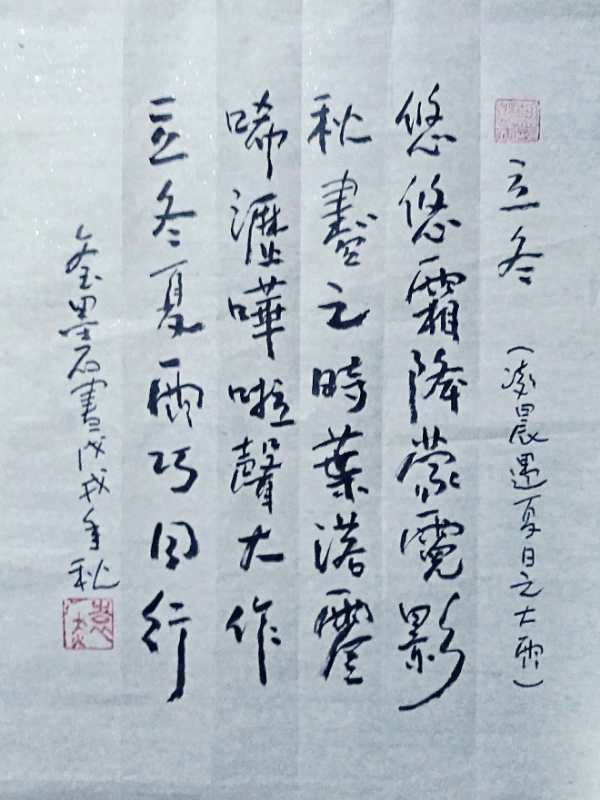 立冬 (凌晨遇夏日之大雨)
悠悠霜降蒙霓影
秋尽之時葉落零
唏瀝嘩啦聲大作
立冬夏雨巧同行
金墨石書戊戌年秋